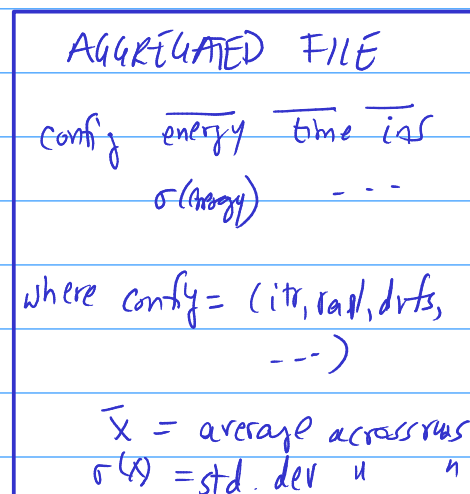 AGGREGATED FILE
config e̅n̅e̅r̅g̅y̅ t̅i̅m̅e̅ i̅n̅s̅
σ(energy) ---
where config = (itr, rapl, dvfs,
---)
x̅ = average across runs
σ(x) = std. dev " "